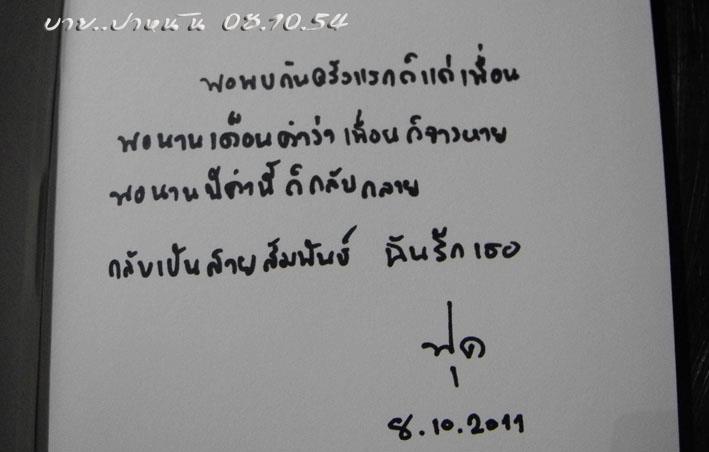 บาย..ปาหนัน 08.10.54
พอพบกันครั้งแรกก็แค่เพื่อน
พอนานเดือนคำว่าเพื่อนก็จางหาย
พอนานปีคำนี้ก็กลับกลาย
กลับเป็นสายสัมพันธ์ ฉันรักเธอ
ฟุค
8.10.2011